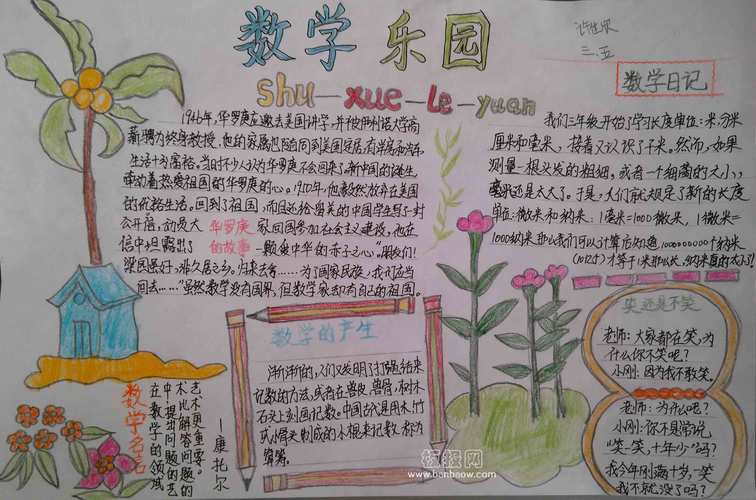 数学乐园
shu-xue-le-yuan
三、五
数学日记
1946年,华罗庚应邀去美国讲学,并被伊利诺大学高
薪聘为终身教授,他的家属也随同到美国定居,有洋房和汽车,
生活十分富裕。当时不少人认为华罗庚不会回来了。新中国的诞生,
牵动着热爱祖国的华罗庚的心。1950年,他毅然放弃在美国
的优裕生活。回到了祖国,而且还给留美的中国学生写了一封
公开信,动员大
家回国参加社会主义建设,他在
信中坦露出了
一颗爱中华的赤子之心“朋友们!
华罗庚
的故事
梁园虽好,非久居之乡。归来去兮……为了国家民族,我们应当
回去……”虽然数学没有国界,但数学家却有自己的祖国。
我们三年级开始了学习长度单位:米、分米
厘米和毫米,接着又认识了千米。然而,如果
测量一根头发的粗细,或者一个细菌的大小,
毫米还是太大了。于是,人们就规定了新的长度
单位:微米和纳米:1毫米=1000微米,1微米=
1000纳米
数学的产生
渐渐的,人们又发明了打绳结来
记数的方法,或者在兽皮、兽骨、树木、
石头上刻画记数。中国古代是用木、竹
或小骨头制成的小棍来记数,称为
算筹。
笑还是不笑
老师:大家都在笑,为
什么你不笑呢?
小刚:因为我不敢笑。
老师:为什么呢?
小刚:你不是常说
“笑一笑,十年少”吗?
我今年刚满十岁,一笑
我不就没了吗?
数学名言
在数学的领域
中,提出问题的艺
术比解答问题的
艺术更重要。
—康托尔
板报网
www.banbaow.com